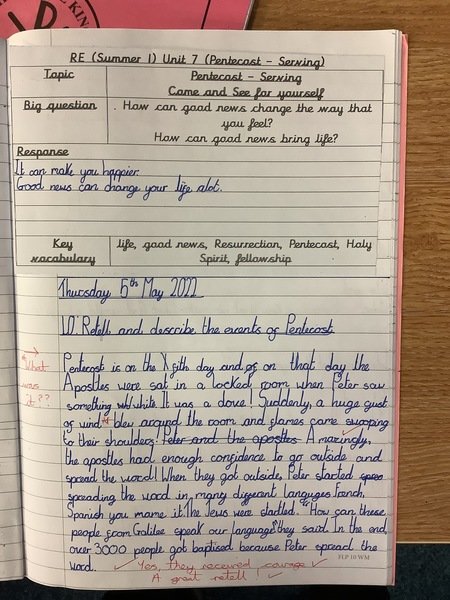 KIN
RE (Summer 1) Unit 7 (Pentecost - Serving)
Topic
Pentecost - Serving
Come and See for yourself
Big question
. How can good news change the way that
you feel?
How can good news bring life?
Response
It can make you happier.
Good news can change your life alot.
Key
vocabulary
life, good news, Resurrection, Pentecost, Holy
Spirit, fellowship
Thursday 5th May 2022
LO: Retell and describe the events of Pentecost.
Pentecost is on the fith day and on that day the
Apostles were sat in a locked room when Peter saw
something white. It was a dove! Suddenly, a huge gust
of wind blew around the room and flames came swooping
to their shoulders! Peter and the apostles Amazingly,
the apostles had enough confidence to go outside and
spread the word! When they got outside, Peter started
spreading the word in many different languges French,
Spanish you mame it. The Jews were startled. "How can these
people from Galilee speak our language" they said. In the end,
over 3000 people got baptised because Peter spread the
word.
What
was
it??
Yes, they received courage
A great retell!
FLP 10 WM